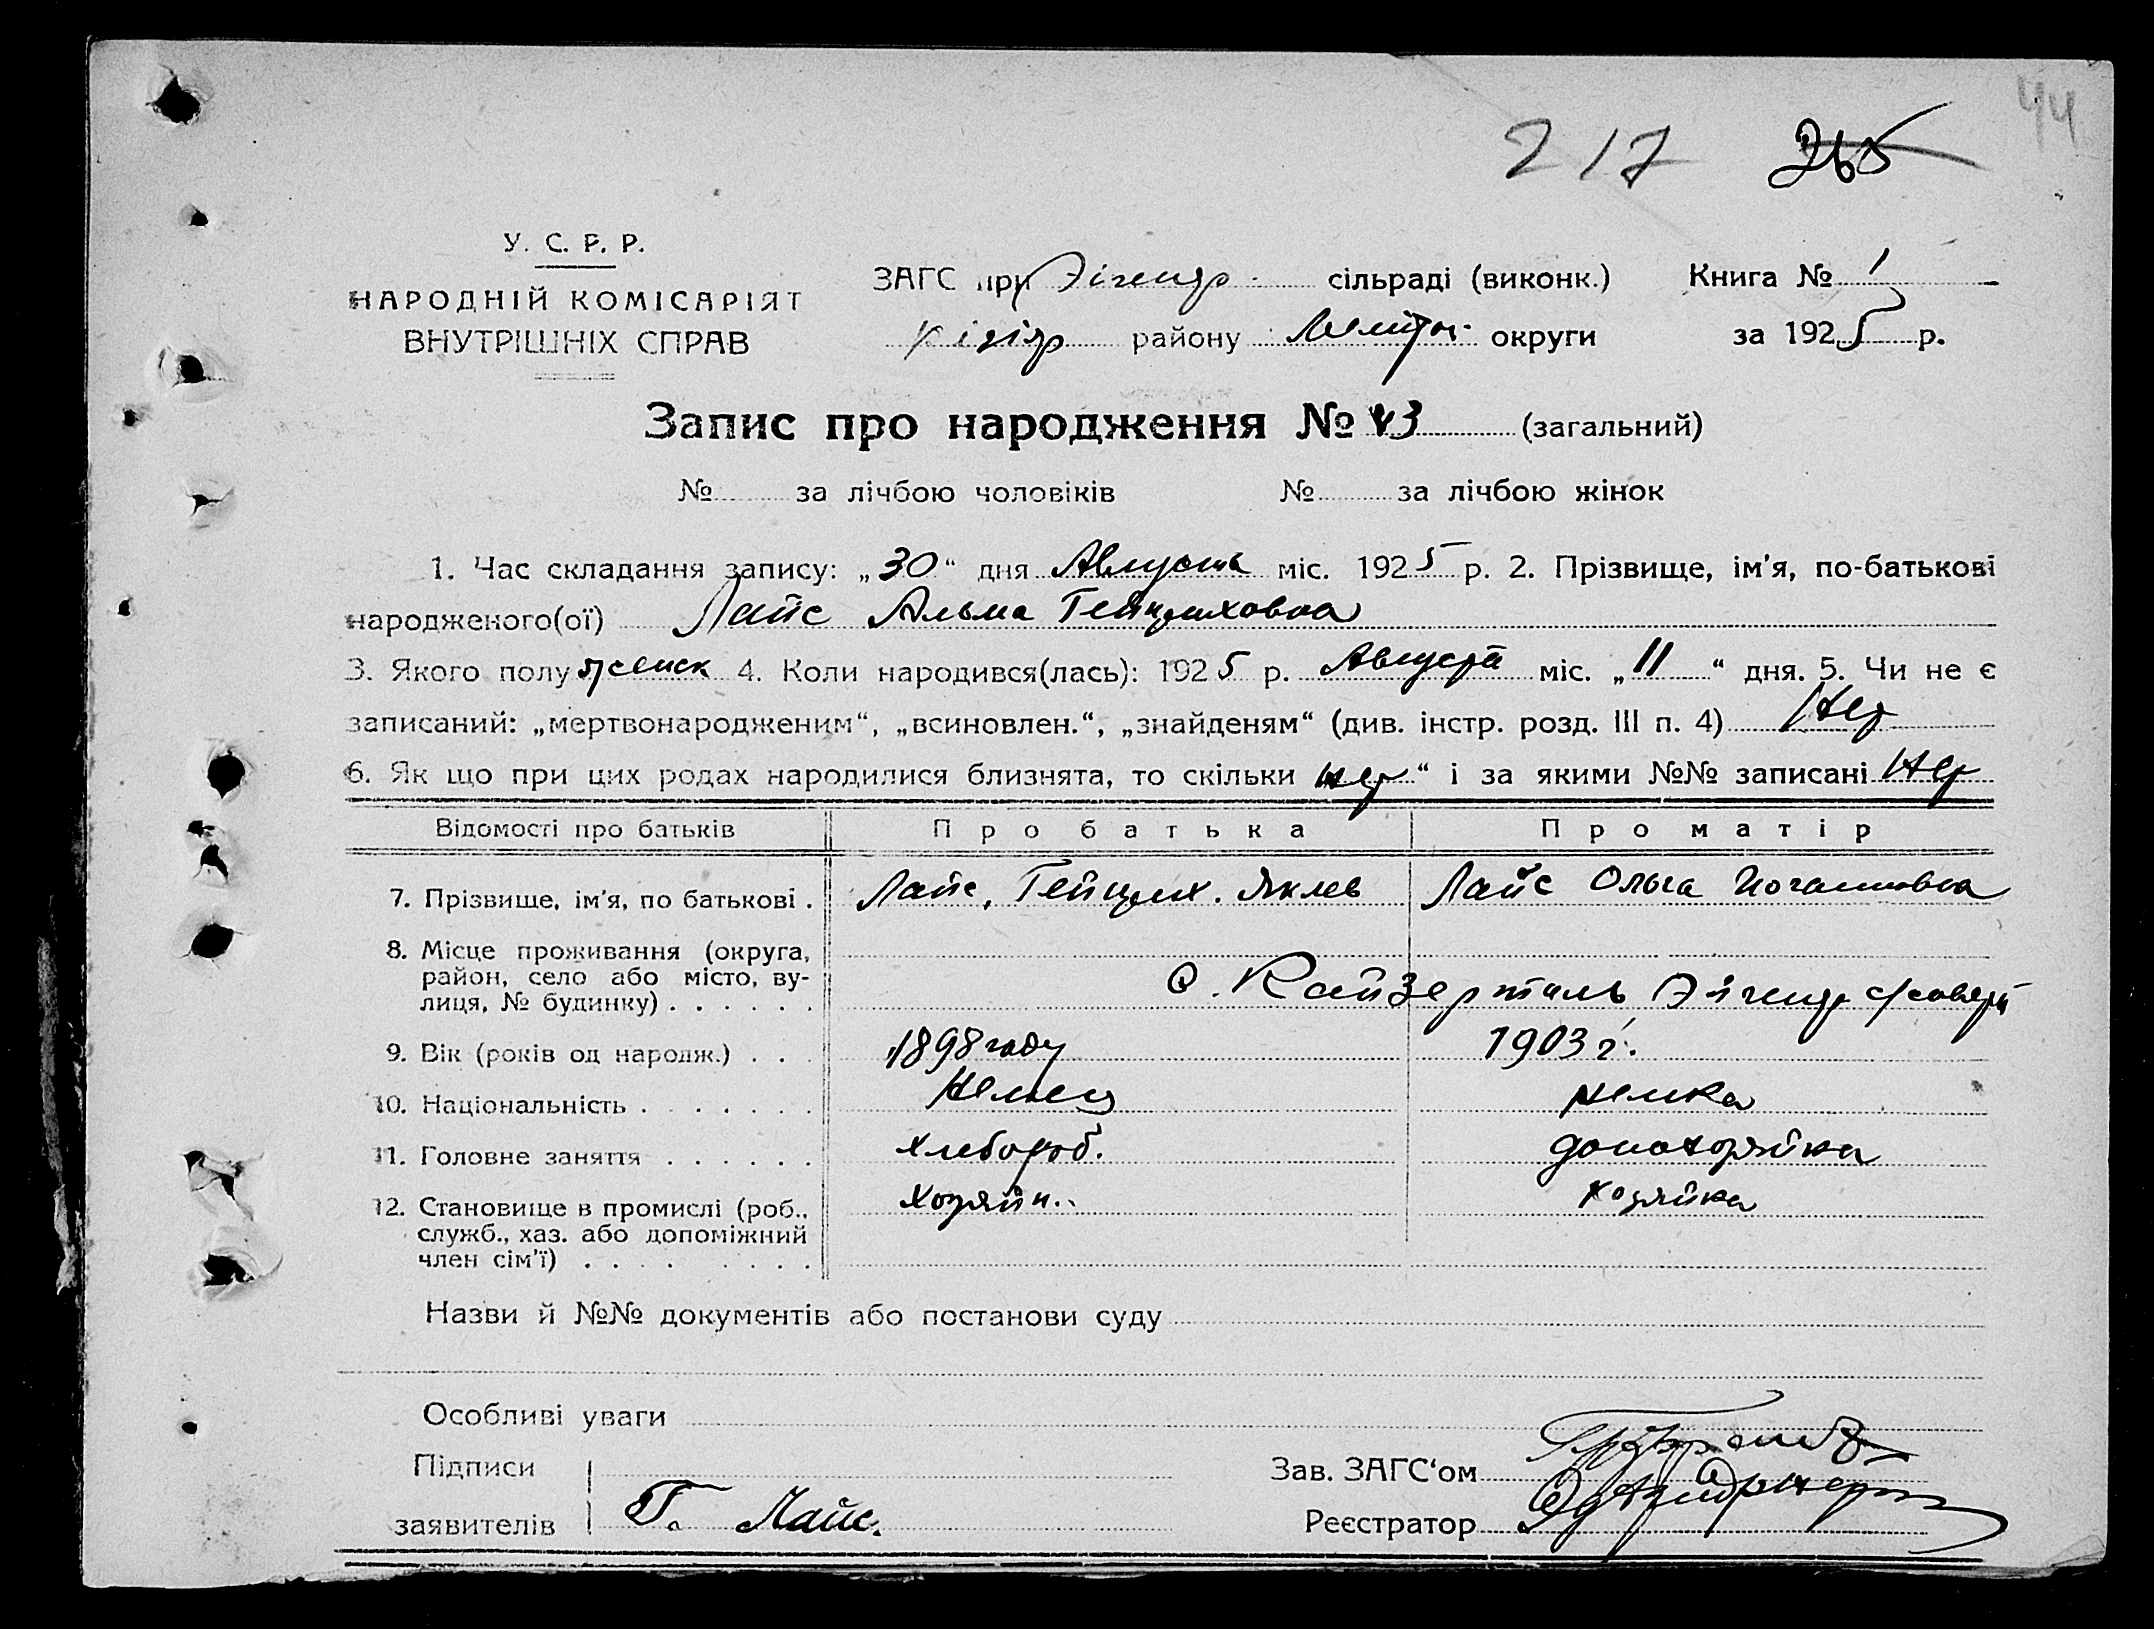 44
217 265
У. С. Р. Р.
НАРОДНІЙ КОМІСАРІЯТ
ВНУТРІШНІХ СПРАВ
ЗАГС при Эйгенф. сільраді (виконк.) Книга № 1
району Меліт. округи за 1925 р.
Запис про народження № 43 (загальний)
№ за лічбою чоловіків № за лічбою жінок
1. Час складання запису: „30“ дня Августа міс. 1925 р. 2. Прізвище, ім'я, по-батькові
народженого(ої) Лайс Альма Гейнриховна
3. Якого полу женск 4. Коли народився(лась): 1925 р. Августа міс. „11“ дня. 5. Чи не є
записаний: „мертвонародженим“, „всиновлен.“, „знайденям“ (див. інстр. розд. III п. 4) Нет
6. Як що при цих родах народилися близнята, то скільки нет“ і за якими №№ записані Нет
Відомості про батьків Про батька Про матір
7. Прізвище, ім'я, по батькові . Лайс, Гейнрих. Яклев Лайс Ольга Иогановна
8. Місце проживання (округа,
район, село або місто, ву-
лиця, № будинку) . . . . . . с. Кайзерталь Эйгенф с/совета
9. Вік (років од народж.) . . . 1898 году 1903 г.
10. Національність . . . . . . . Немец немка
11. Головне заняття . . . . . . хлебороб. домохозяйка
12. Становище в промислі (роб., хозяин. хозяйка
служб., хаз. або допоміжний
член сім'ї) . . . . . . . .
Назви й №№ документів або постанови суду
Особливі уваги
Підписи
заявителів Г. Лайс.
Зав. ЗАГС'ом
Реєстратор